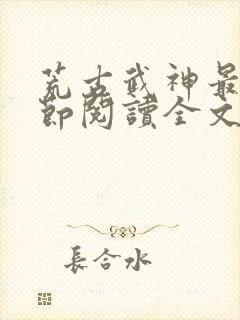 荒古武神最
節閱讀全文
長合水